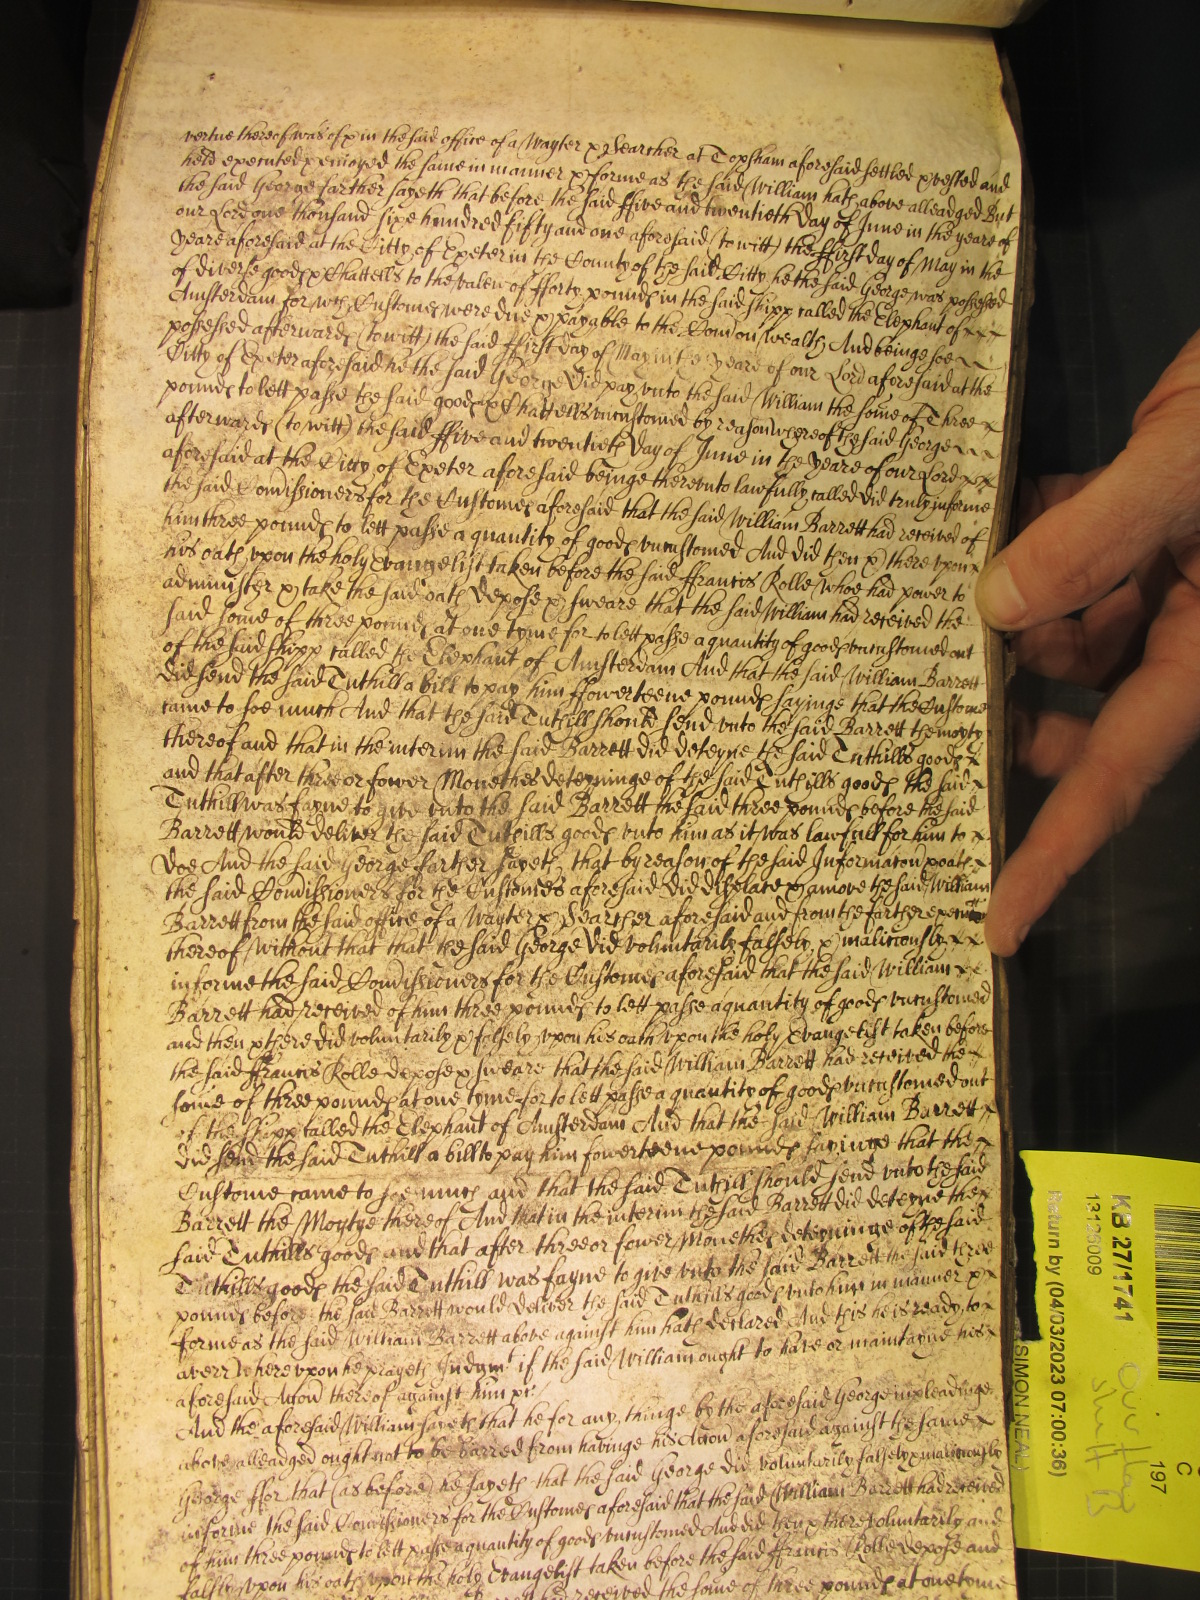 vertue thereof was of & in the said office of a Wayter & Searcher at Topsham aforesaid settled & vested and
held executed & enioyed the same in manner & forme as the said William hath above alleadged But
the said George farther sayeth that before the said ffive and twentieth Day of June in the yeare of
our Lord one thousand sixe hundred fifty and one aforesaid (to witt) the ffirst day of May in the
yeare aforesaid at the Citty of Exeter in the County of the said Citty he the said George was possessed
of diverse goods & Chattells to the valew of fforty pounds in the said shipp called the Elephant of
Amsterdam for wch Customes were due & payable to the Comon wealth And beinge soe
possessed afterwards (to witt) the said ffirst day of May in the yeare of our Lord aforesaid at the
Citty of Exeter aforesaid he the said George Did pay vnto the said William the some of Three
pounds to lett passe the said goods & Chattells vncustomed by reason whereof the said George
afterwards (to witt) the said ffive and twentieth Day of June in the yeare of our Lord
aforesaid at the Citty of Exeter aforesaid beinge therevnto lawfully called did truly informe
the said Comissioners for the Customes aforesaid that the said William Barrett had received of
him three pounds to lett passe a quantity of goods vncustomed And did then & there vpon
his oath vpon the holy Evangelist taken before the said ffrancis Rolle whoe had power to
administer & take the said oath Depose & sweare that the said William had received the
said some of three pounds at one tyme for to lett passe a quantity of goods vncustomed out
of the said shipp called the Elephant of Amsterdam And that the said William Barrett
did send the said Tuthill a bill to pay him ffowerteene pounds sayinge that the Custome
came to soe much And that the said Tuthill should send vnto the said Barrett the moyty
thereof and that in the interim the said Barrett did deteyne the said Tuthills goods
and that after three or fower Monethes deteyninge of the said Tuthills goods the said
Tuthill was fayne to give vnto the said Barrett the said three pounds before the said
Barrett would deliver the said Tuthills goods vnto him as it was lawfull for him to
doe And the said George farther sayeth that by reason of the said Informacon & oath
the said Comissioners for the Customes aforesaid did displace & amove the said William
Barrett from the said office of a Wayter & Searcher aforesaid and from the farther
thereof Without that that the said George did voluntarily falsely & maliciously
informe the said Comissioners for the Customes aforesaid that the said William
Barrett had received of him three pounds to lett passe a quantity of goods vncustomed
and then & there did voluntarily & falsely vpon his oath vpon the holy Evangelist taken before
the said ffrancis Rolle depose & sweare that the said William Barrett had received the
some of three pounds at one tyme for to lett passe a quantity of goods vncustomed out
of the shipp called the Elephant of Amsterdam And that the said William Barrett
did send the said Tuthill a bill to pay him fowerteene pounds sayinge that the
Custome came to soe much and that the said Tuthill should send vnto the said
Barrett the Moytye thereof And that in the interim the said Barrett did deteyne the
said Tuthills goods and that after three or fower Monethes deteyninge of the said
Tuthills goods the said Tuthill was fayne to give vnto the said Barrett the said three
pounds before the said Barrett would deliver the said Tuthills goods vnto him in manner &
forme as the said William Barrett above against him hath declared And this he is ready to
averr Wherevpon he prayeth Judgmt if the said William ought to have or maintayne his
aforesaid Accon thereof against him &c
And the aforesaid William sayeth that he for any thinge by the aforesaid George in pleadinge
above alleadged ought not to be barred from havinge his Accon aforesaid against the same
George ffor that (as before) he sayeth that the said George did voluntarily falsely & maliciously
informe the said Comissioners for the Customes aforesaid that the said William Barrett had received
of him three pounds to lett passe a quantity of goods vncustomed And did then & there voluntarily and
falsly vpon his oath vpon the holy Evangelist taken before the said ffrancis Rolle depose and
had received the some of three pounds at one tyme
KB 27/1741
13125009
Return by (04/03/2023 07:00:36)
(SIMON NEAL)
C
197